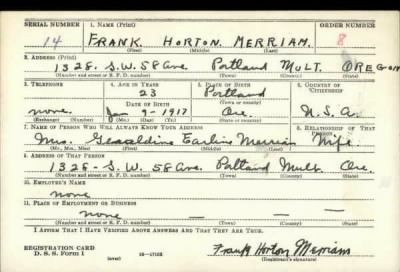 SERIAL NUMBER 1. NAME (Print) ORDER NUMBER
14 FRANK HORTON. MERRIAM. 8
(First) (Middle) (Last)
2. ADDRESS (Print)
1328. S.W. 58 Ave. Portland MULT. OREGON
(Number and street or R. F. D. number) (Town) (County) (State)
3. TELEPHONE 4. AGE IN YEARS 5. PLACE OF BIRTH 6. COUNTRY OF CITIZENSHIP
23 Portland
DATE OF BIRTH (Town or county)
none. Jan 9-1917 Ore. U.S.A.
(Exchange) (Number) (Mo.) (Day) (Yr.) (State or country)
7. NAME OF PERSON WHO WILL ALWAYS KNOW YOUR ADDRESS 8. RELATIONSHIP OF THAT PERSON
Mrs. Geraldine Earline Merriam Wife
(Mr., Mrs., Miss) (First) (Middle) (Last)
9. ADDRESS OF THAT PERSON
1328- S.W. 58 Ave. Portland Mult. Ore.
(Number and street or R. F. D. number) (Town) (County) (State)
10. EMPLOYER'S NAME
none
11. PLACE OF EMPLOYMENT OR BUSINESS
none — — —
(Number and street or R. F. D. number) (Town) (County) (State)
I AFFIRM THAT I HAVE VERIFIED ABOVE ANSWERS AND THAT THEY ARE TRUE.
REGISTRATION CARD
D. S. S. Form 1 (over) Frank Horton Merriam
(Registrant's signature)